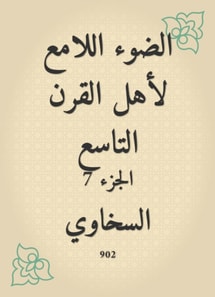 الضوء اللامع
لأهل القرن
التاسع
الجزء 7
السخاوي
902